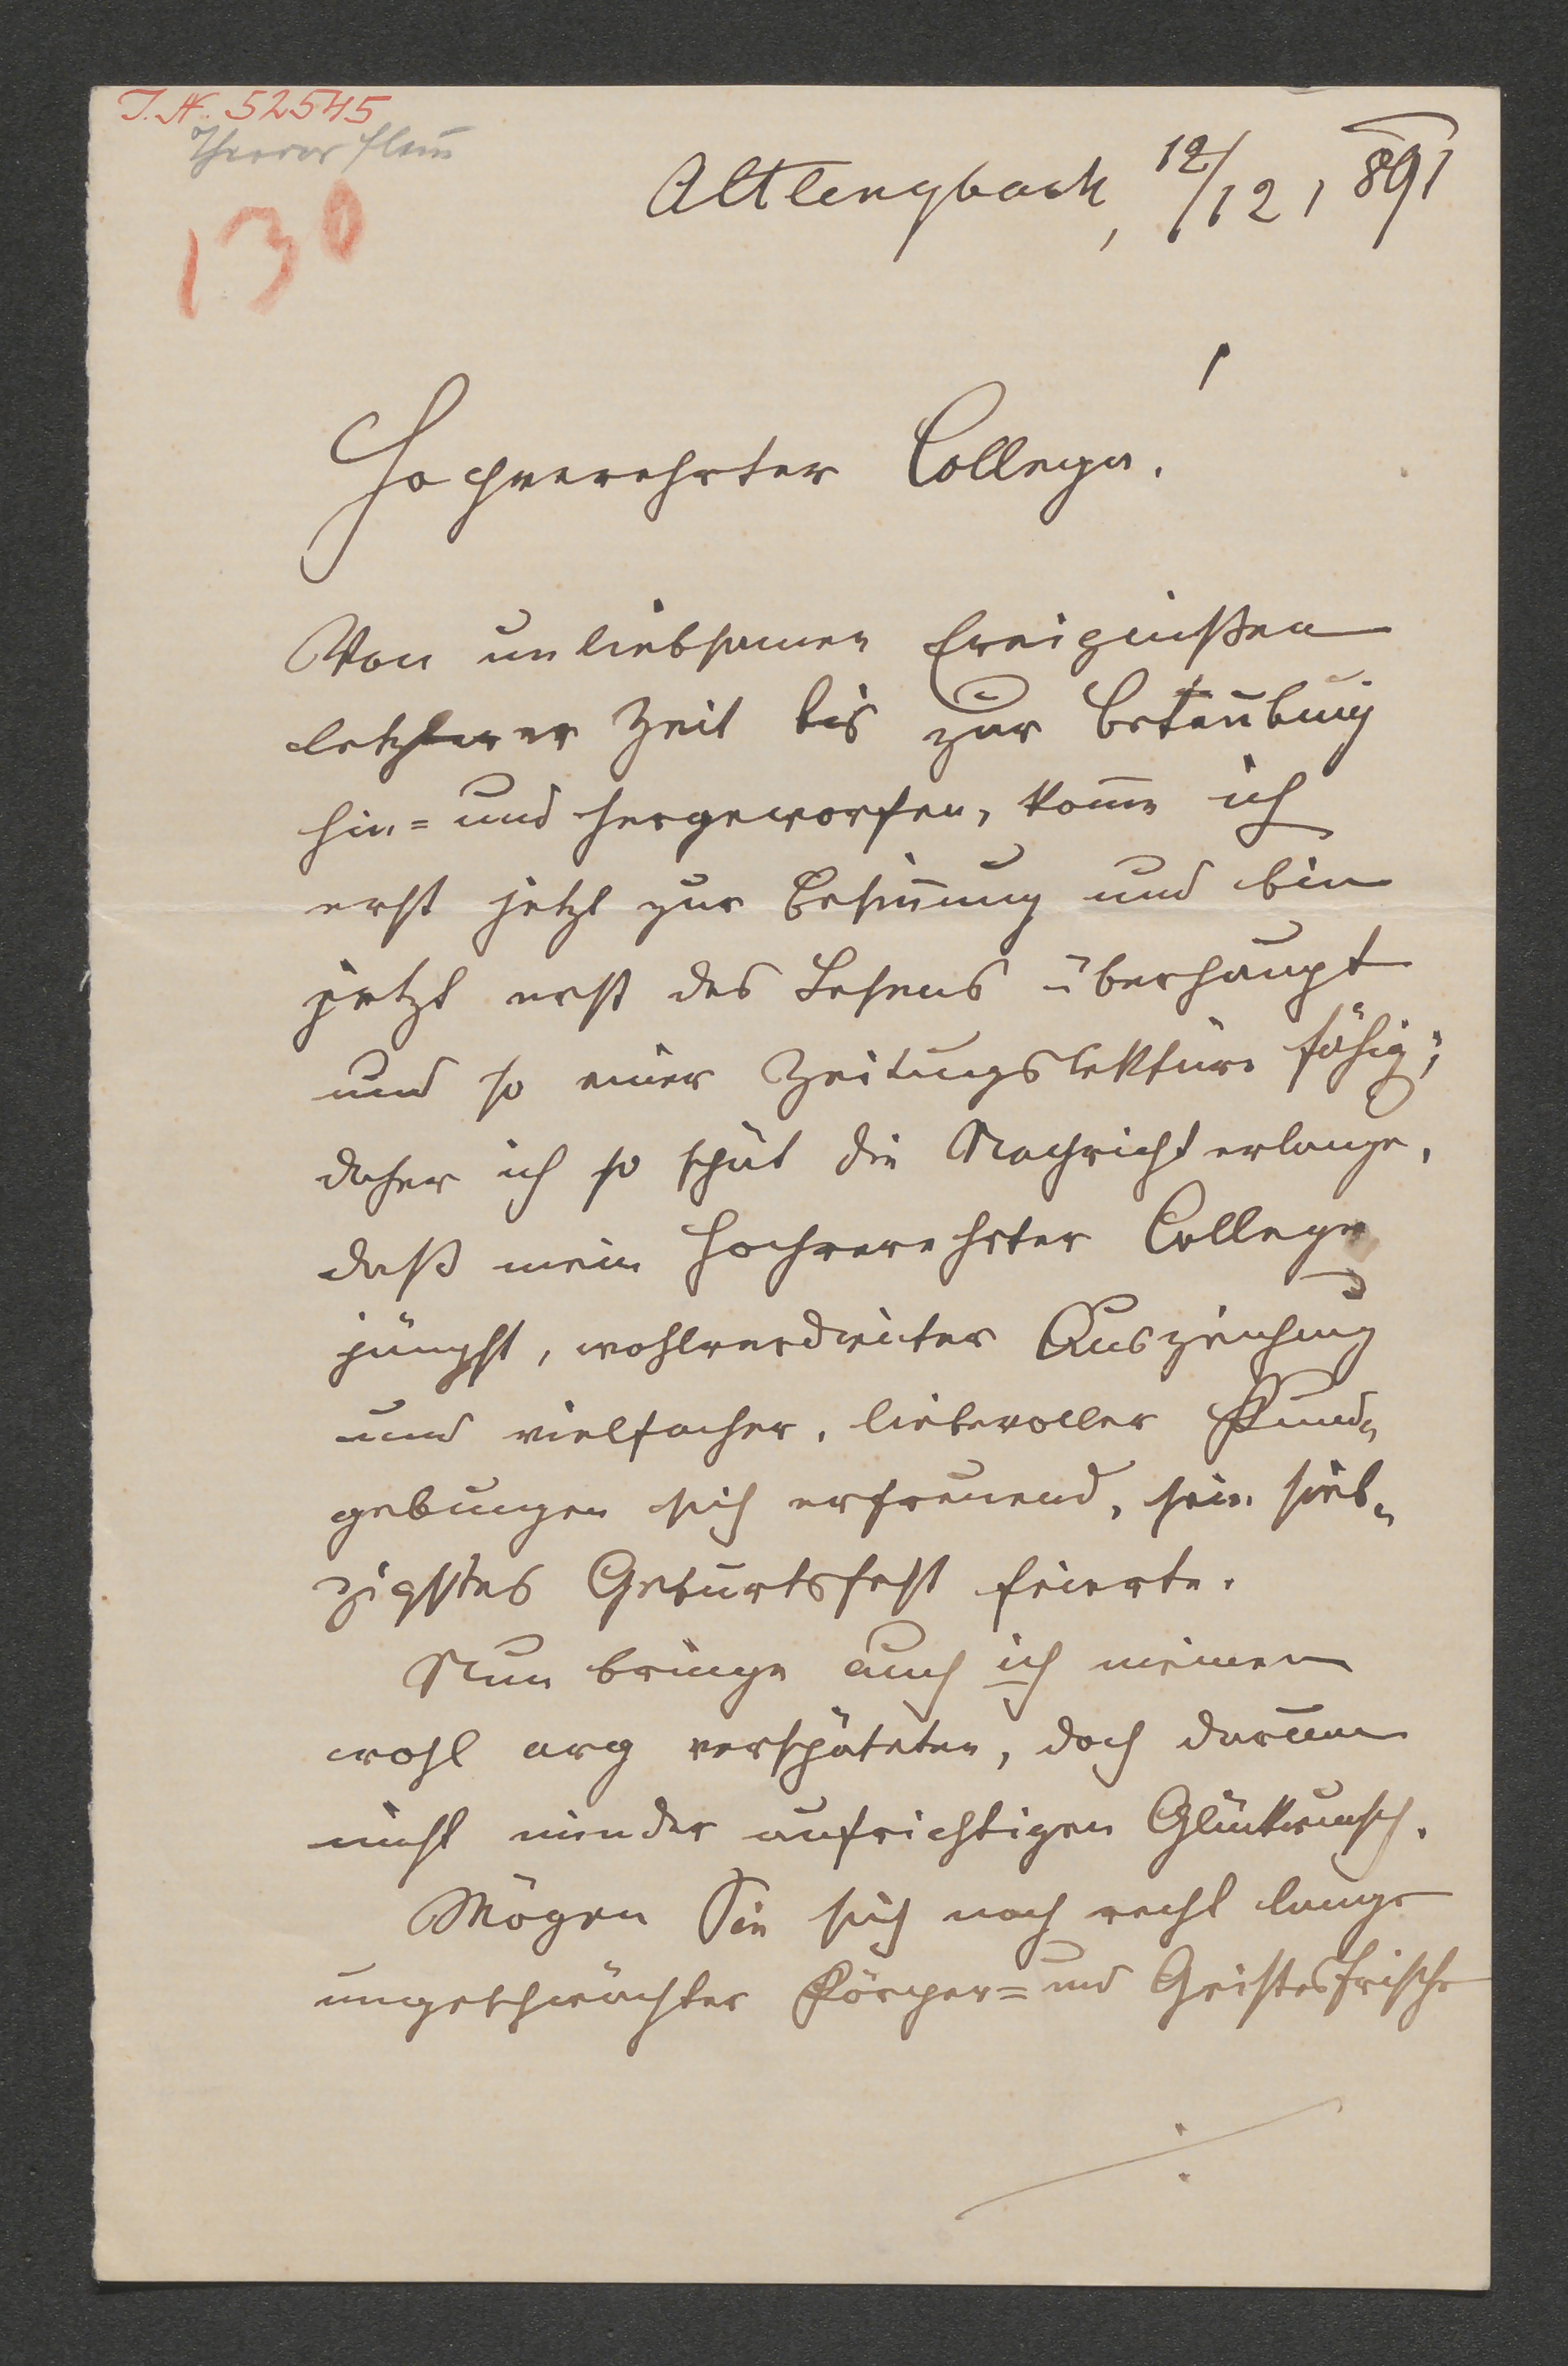 I.N. 52545
Theodor
130
Altlengbach, 12/12, 891
Hochverehrter College!
Von unliebsamen Ereignißen
letzterer Zeit bis zur Betäubung
hin= und hergeworfen, kom̅e ich
erst jetzt zur Besin̅ung und bin
jetzt erst des Lesens überhaupt
und so einer Zeitungslektüre fähig;
daher ich so spät die Nachricht erlange,
daß mein hochverehrter College
jüngst, wohlverdienter Auszeichnung
und vielfacher, liebevoller Kund„
gebungen sich erfreuend, sein sieb„
zigstes Geburtsfest feierte.
Nun bringe auch ich meinen
wohl arg verspäteten, doch darum
nicht minder aufrichtigen Glückwunsch.
Mögen Sie sich noch recht lange
ungeschwächter Körper= und Geistesfrische